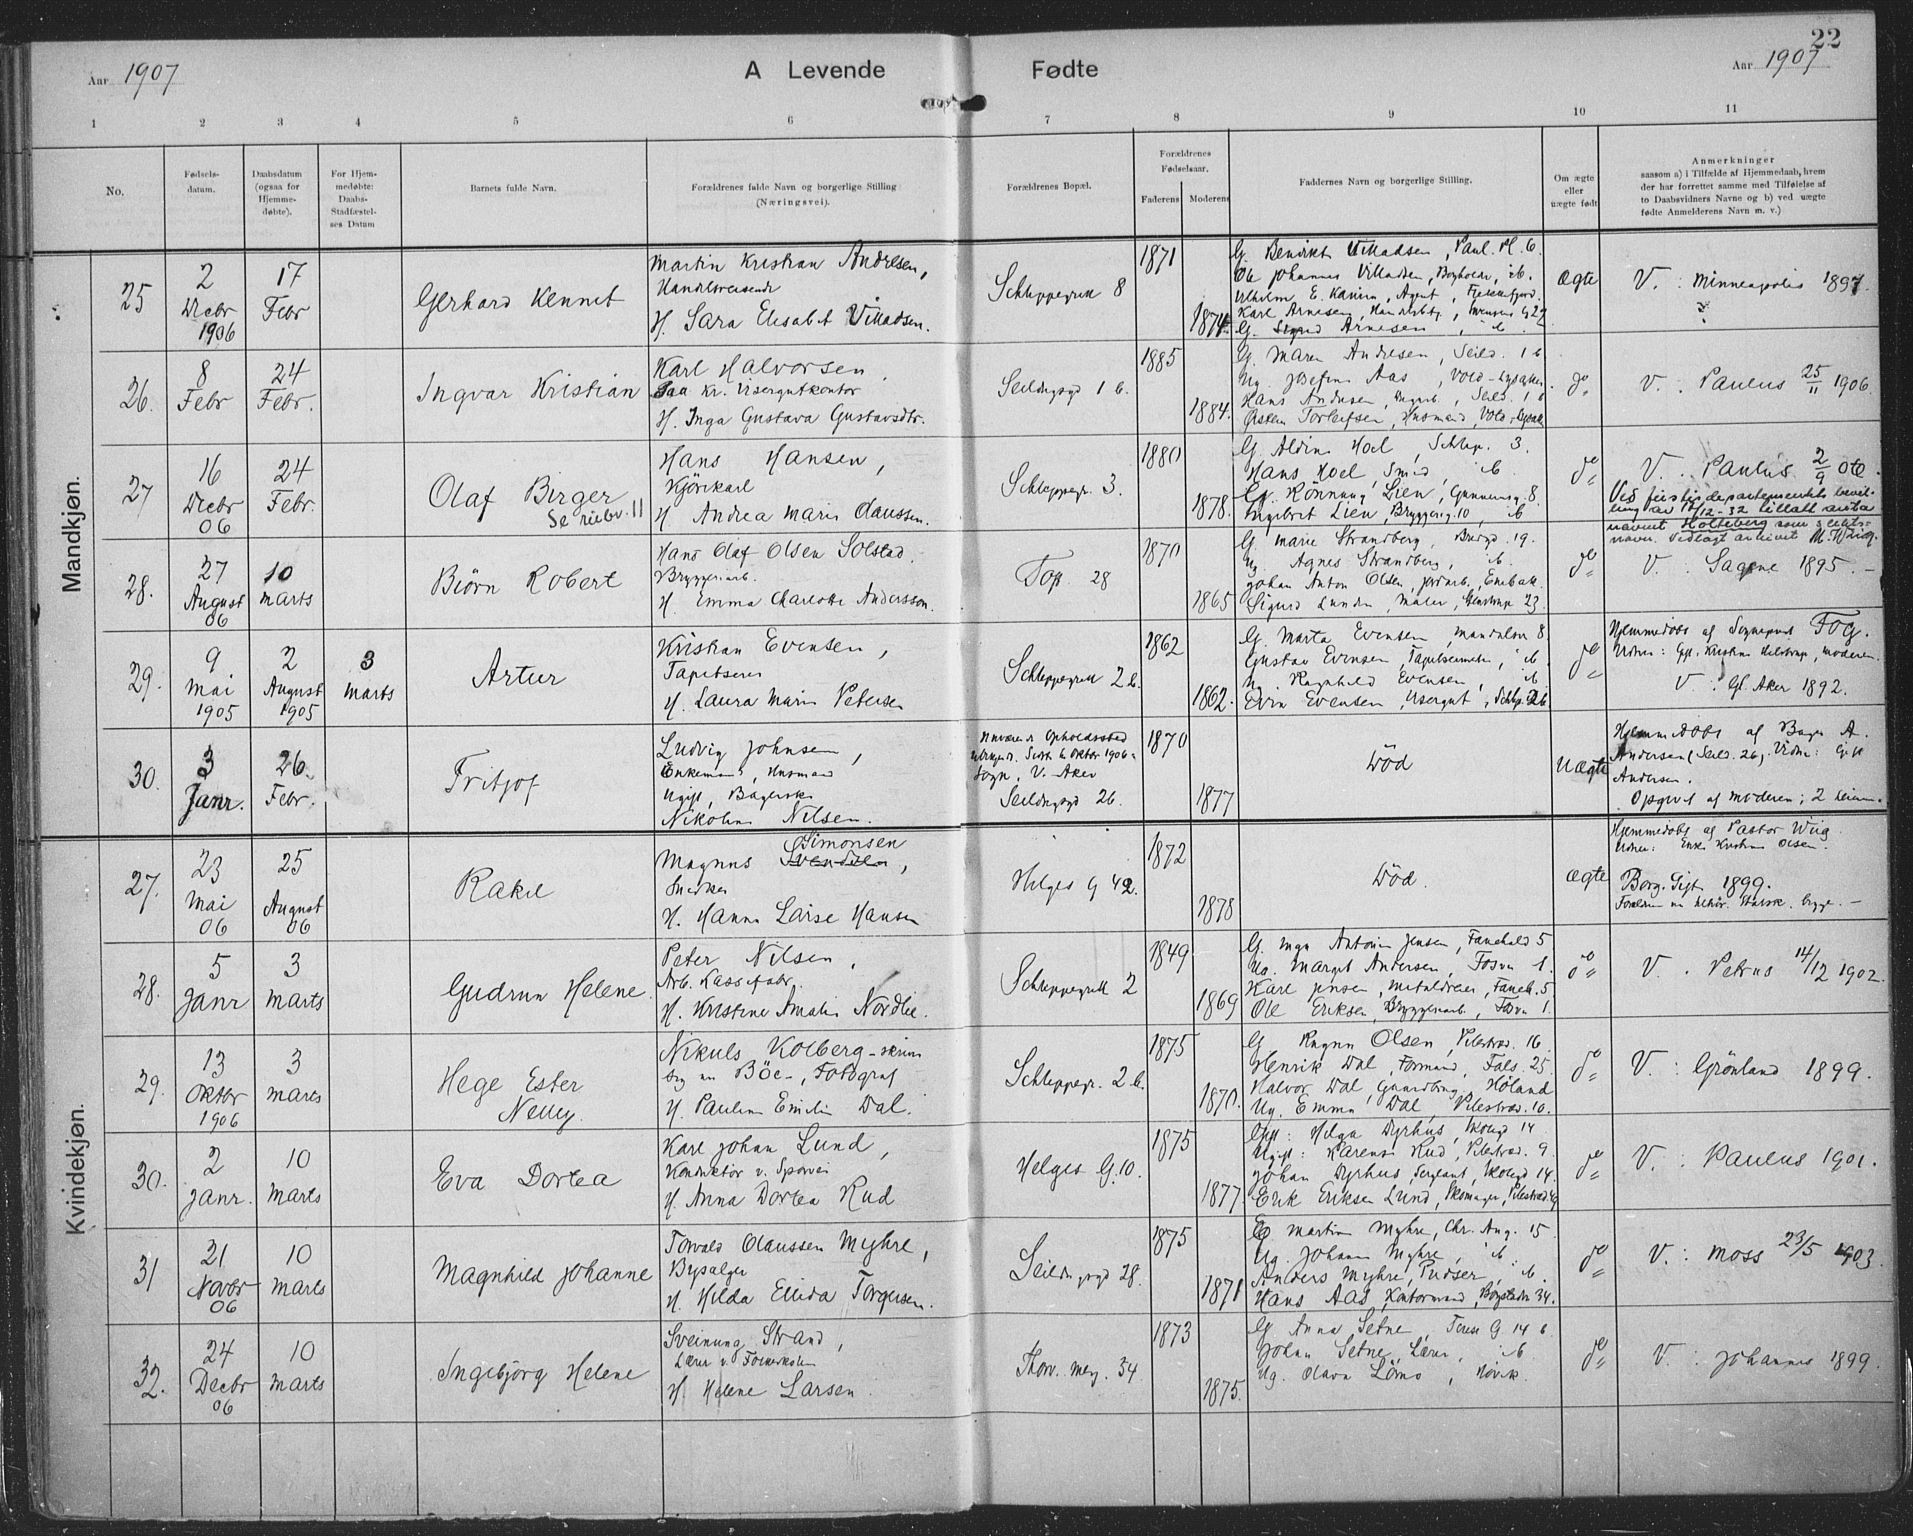 22
Aar 1907
A Levende Fødte
Aar 1907
1 2 3 4 5 6 7 8 9 10 11
No.
Fødsels-
datum.
Daabsdatum
(ogsaa for
Hjemme-
døbte).
For Hjem-
medøbte:
Daabs-
Stadfæstel-
ses Datum
Barnets fulde Navn.
Forældrenes fulde Navn og borgerlige Stilling
(Næringsvei).
Forældrenes Bopæl.
Forældrenes
Fødselsaar.
Faderens Moderens
Faddernes Navn og borgerlige Stilling.
Om ægte
eller
uægte født
Anmerkninger
saasom a) i Tilfælde af Hjemmedaab, hvem
der har forrettet samme med Tilføielse af
to Daabsvidners Navne og b) ved uægte
fødte Anmelderens Navn m. v.)
Mandkjøn.
25
2
Decbr
1906
17
Febr
Gerhard Kennet
Martin Kristian Andresen,
Handelsreisende
H. Sara Elisabet Villadsen.
Schleppegrell 8
1871
1874
G. Benedikte Villadsen, Paul. Pl. 6.
Ole Johannes Villadsen, Bogholder, ib.
Karl Arnesen,
G. Sigrid Arnesen, ib.
ægte
V. : Minneapolis 1897
26.
8
Febr
24
Febr.
Ingvar Kristian
Karl Halvorsen,
Paa Kr. Visergutkontor
H. Inga Gustava Gustavsdtr.
Seildugsgd 1 b.
1885
1884.
G. Maren Andresen, Seild. 1 b
Ug. Josefine Aas, Vold - Lysaker.
Hans Andresen, Seild. 1 b
Østen Torleifsen, Husmand, Vold - Lysak.
do
V. : Paulus 25/11 1906.
27
16
Decbr
06
24
Febr.
Olaf Birger
Hans Hansen,
Kjørekarl
H. Andrea Marie Claussen.
Schleppegr. 3.
1880
1878.
G. Aldine Hoel, Schlep. 3.
Hans Hoel, Smed, ib
G. Rønnaug Lien, Gunnersg. 8.
Engebret Lien, Bryggerig. 10, ib
do
V. Paulus 2/9 06.
Ved justisdepartementets bevil-
ling av 12-32 tillatt anta
navnet Holteberg som slekts-
navn. Vedlagt arkivet
28.
27
August
06
10
Marts
Biørn Robert
Hans Olaf Olsen Solstad,
Bryggeriarb.
H. Emma Charlotte Andersson.
Top. 28
1870
1865
G. Marie Strandberg, Burgd. 19.
Ug. Agnes Strandberg, ib.
Johan Anton Olsen, Jordarb., Enebak.
Sigurd Lunden, Maler, 23.
do
V. Sagene 1895.
29.
9
Mai
1905
2
August
1905
3
Marts
Artur
Kristian Evensen,
Tapetserer
H. Laura Marie Petersen
Schleppegrell 2 b.
1862
1862.
G. Marta Evensen, 8
Gustav Evensen, Tapetserer, ib
Ug. Ragnhild Evensen, ib
Edvin Evensen, Visergut, Schlep. 2 b
do
Hjemmedøbt af Sogneprest Fog.
Vidner: Gift. Kristine, Moderen.
V. Gl. Aker 1892.
30.
3
Janr.
26.
Febr.
Fritjof
Ludvig Johnsen,
Enkemand, Husmand
Ugift, Bagerske
Nikoline Nilsen.
Oktbr 1906
Sogn, V. Aker
Seildugsgd 26.
1870
1877
Død
Uægte
Hjemmedøbt af Bager A.
Andersen (Seild. 26), Vidne: Gift
Andersen.
Opgivet af Moderen;
Kvindekjøn.
27.
23
Mai
06
25
August
06
Rakel
Simonsen
Magnus Svendsen,
Snedker
H. Hanna Larse Hansen
Helges G 42.
1872
1878
Død.
ægte
Hjemmedøbt af Pastor Wiig.
Vidner: Enke Kristine Olsen.
Borg. Vigt 1899.
28.
5
Janr
3
Marts
Gudrun Helene.
Peter Nilsen,
Arb.
H. Kristine Amalie Nordlie.
Schleppegrell 2
1849
1869
G. Inga Antonie Jensen, Fanehald 5
Ug. Margit Andersen, Fosvn 1.
Karl Jensen, Metaldreier, Faneh. 5
Ole Eriksen, Bryggeriarb., Fosvn 1.
do
V. Petrus 14/12 1902.
29.
13
Oktbr
1906
3
Marts
Hege Ester
Nelly.
Nikuls Kolberg -
Bøe -, Fotograf
H. Pauline Emilie Dal.
Schleppegr. 2 b.
1875
1870.
G. Ragna Olsen, Pilestræd. 16.
Henrik Dal, Formand, Fals. 25
Halvor Dal, Gaardbrug, Høland
Ug. Emma Dal, Pilestræd. 10.
do
V. : Grønland 1899.
30.
2
Janr.
10
Marts
Eva Dortea
Karl Johan Lund,
Konduktør v. Sporvei
H. Anna Dortea Rud
Helges G. 10.
1875
1877.
Gift: Helga Dyrhus, Skolegd 14
Ugift: Karense Rud, Pilestræd. 9
Johan Dyrhus, Sergeant, Skolegd 14.
Erik Eriksen Lund, Skomager, Pilestræd
do
V. : Paulus 1901.
31
21
Novbr
06
10
Marts
Magnhild Johanne
Torvald Olaussen Myhre,
Bysælger
H. Hilda Elida Torgersen.
Seildugsgd 28.
1875
1871
E. Martine Myhre, Chr. Aug. 15
Ug. Johanne Myhre, ib.
Anders Myhre, Pudser, ib.
Hans Aas, Kontormand, 34.
do
V. : Moss 23/5 1903.
32.
24
Decbr
06
10
Marts
Ingebjørg Helene
Sveinung Strand,
Lærer v. Folkeskolen
H. Helene Larsen.
Thorv. Meg. 34
1873
1875.
G. Anna Setne, Terese G 14 b.
Johan Setne, Lærer, ib.
Ug. Olava Lømo,
do
V. : Johannes 1899.